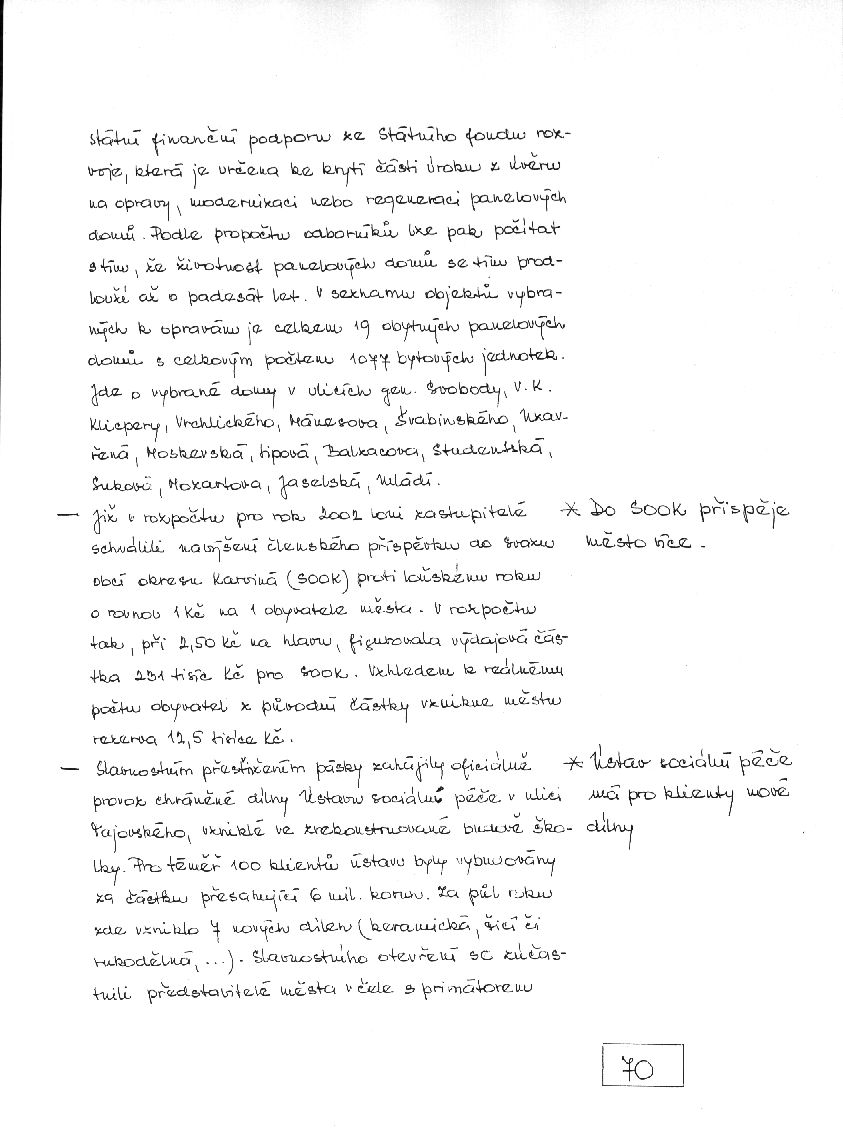 státní finanční podporu ze Státního fondu roz-
voje, která je určena ke krytí části úroku z úvěru
na opravy, modernizaci nebo regeneraci panelových
domů. Podle propočtu odborníků lze pak počítat
s tím, že životnost panelových domů se tím prod-
louží až o padesát let. V seznamu objektů vybra-
ných k opravám je celkem 19 obytných panelových
domů s celkovým počtem 1077 bytových jednotek.
Jde o vybrané domy v ulicích gen. Svobody, V. K.
Klicpery, Vrchlického, Mánesova, Švabinského, Uzav-
řená, Moskevská, Lipová, Balzacova, Studentská,
Suková, Mozartova, Jaselská, Mládí.
— Již v rozpočtu pro rok 2002 loni zastupitelé
schválili navýšení členského příspěvku do Svazu
obcí okresu Karviná (SOOK) proti loňskému roku
o rovnou 1 Kč na 1 obyvatele města. V rozpočtu
tak, při 2,50 Kč na hlavu, figurovala výdajová část-
ka 231 tisíc Kč pro SOOK. Vzhledem k reálnému
počtu obyvatel z původní částky vznikne městu
rezerva 12,5 tisíce Kč.
— Slavnostním přestřižením pásky zahájily oficiálně
provoz chráněné dílny Ústavu sociální péče v ulici
Tajovského, vzniklé ve zrekonstruované budově ško-
lky. Pro téměř 100 klientů ústavu byly vybudovány
za částku přesahující 6 mil. korun. Za půl roku
zde vzniklo 7 nových dílen (keramická, šicí či
rukodělná, ...). Slavnostního otevření se zúčas-
tnili představitelé města v čele s primátorem
* Do SOOK přispěje
město více.
* Ústav sociální péče
má pro klienty nové
dílny
70